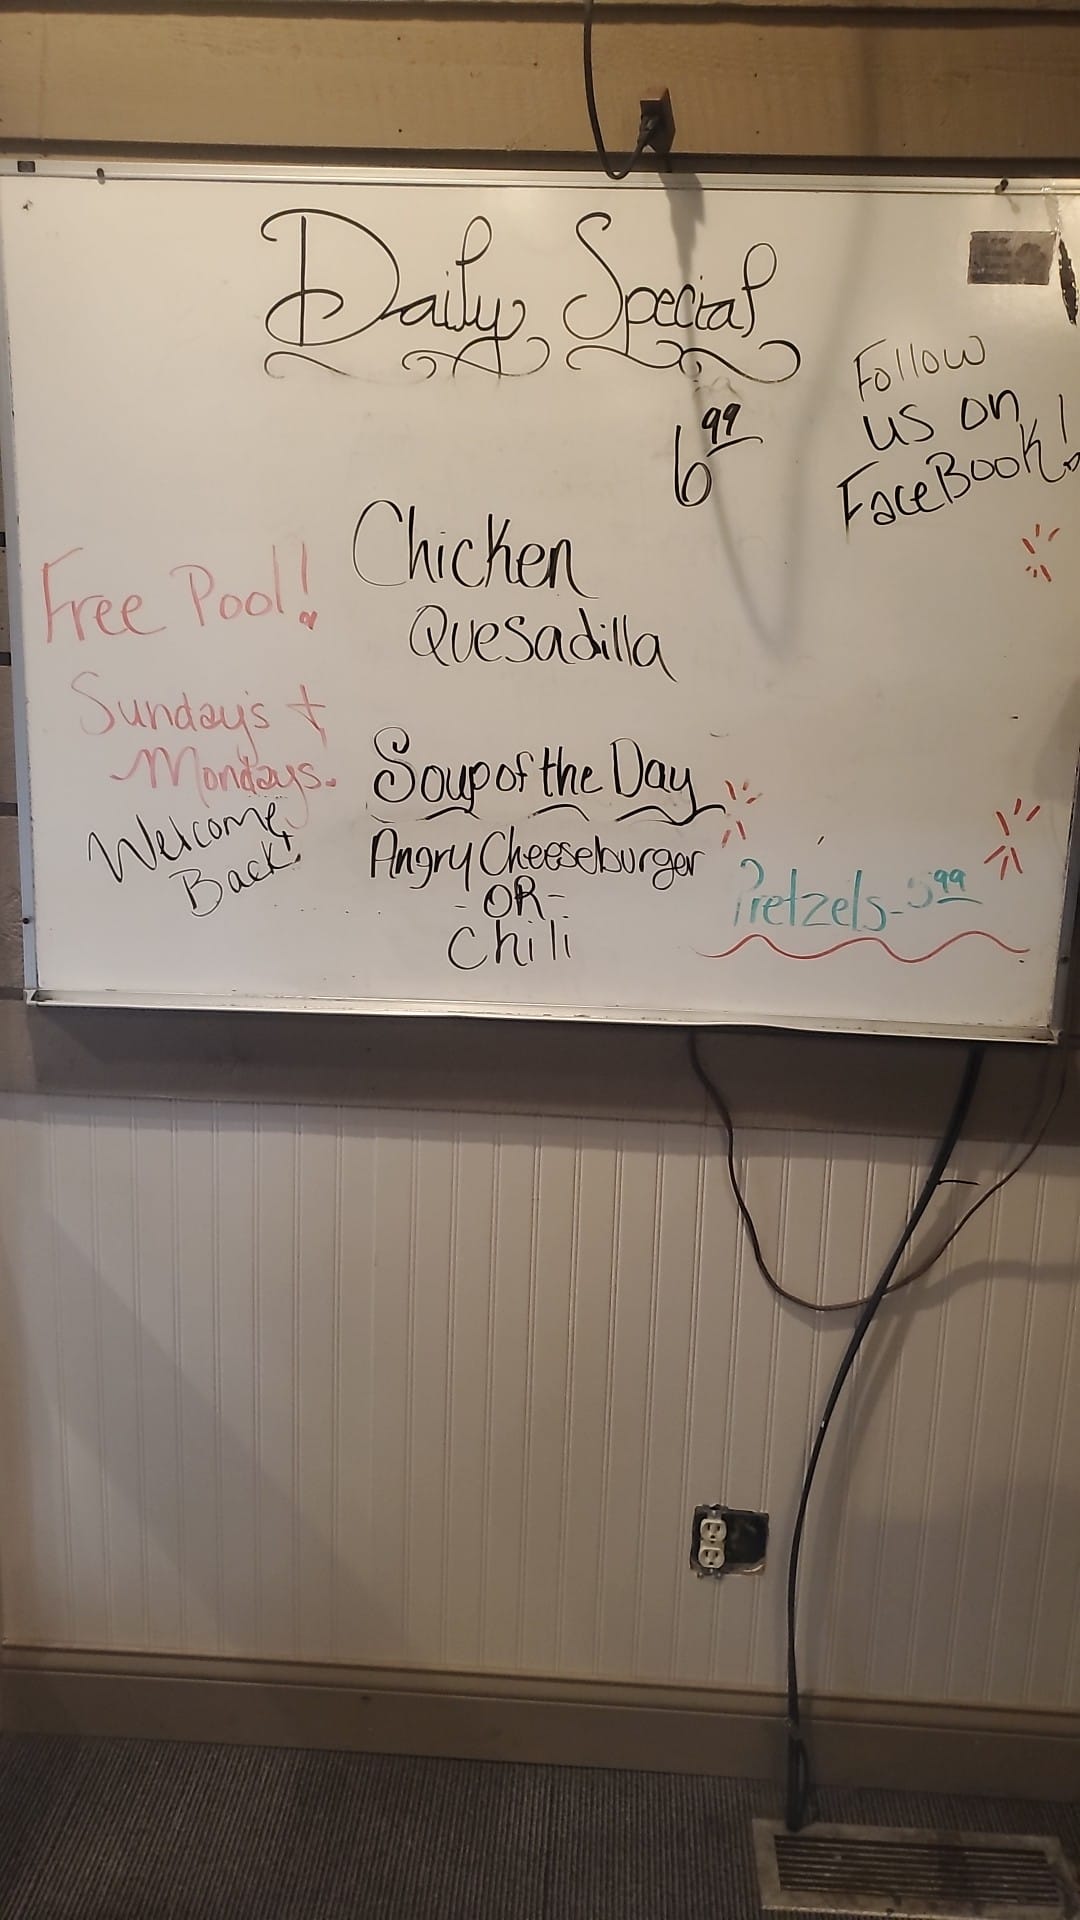 Daily Special
6 99
Follow
us on
FaceBook!
Chicken
Quesadilla
Free Pool!
Sunday's +
Mondays.
Welcome
Back!
Soup of the Day
Angry Cheeseburger
- OR -
Chili
Pretzels - 5 99